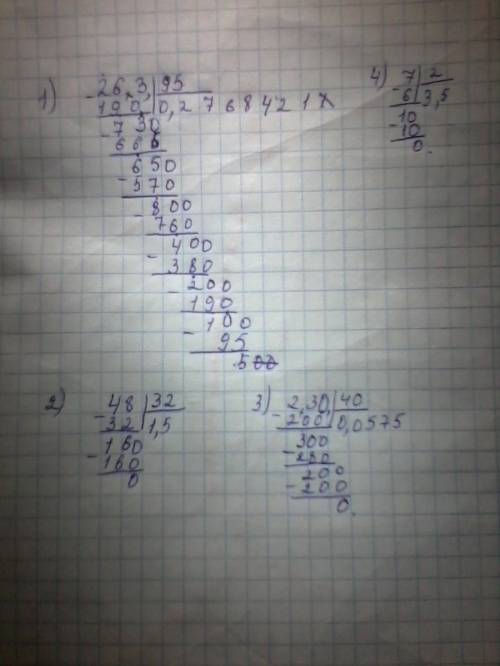 1) - 26,3, | 95
190 | 0,2768421
- 730
665
650
- 570
- 800
760
- 400
380
- 200
190
- 100
95
5
4) - 7 | 2
6 | 3,5
- 10
10
0.
2) - 48 | 32
32 | 1,5
- 160
160
0
3) - 2,30, | 40
200 | 0,0575
- 300
280
- 200
200
0.